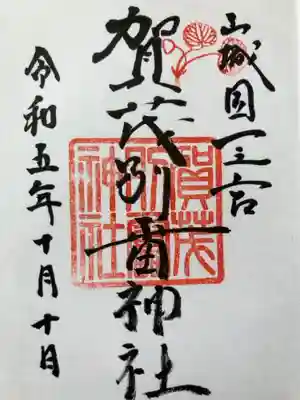 山城国一之宮
賀茂別雷神社
賀茂別雷神社
令和五年十月十日